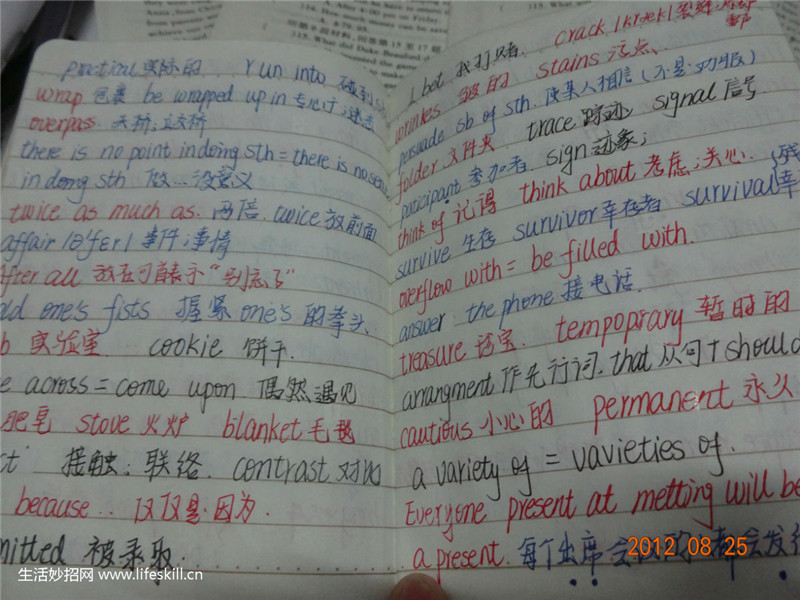 practical 实际的 . run into 碰到
wrap 包裹 be wrapped up in 专心于;迷恋
overpass. 天桥;立交桥
there is no point in doing sth = there is no sense
in dong sth 做...没意义
twice as much as. 两倍. twice 放前面
affair /ə'fer/ 事件;事情
After all 放在句首表示“别忘了”
old one's fists 握紧 one's 的拳头
b 实验室 cookie 饼干.
e across = come upon 偶然遇见
肥皂 stove 火炉 blanket 毛毯
ct 接触;联络. contrast 对比
because... 仅仅是.因为.
mitted 被录取.
I bet 我打赌. crack /kræk/ 裂缝;
wrinkles 皱的 stains 污点、
persuade sb of sth. 使某人相信(不是:说服)
folder 文件夹. trace 踪迹 signal 信号
paticipant 参加者 sign 迹象;
think of 记得 think about 考虑;关心.
survive 生存 survivor 幸存者 survival 幸
overflow with = be filled with.
answer the phone 接电话.
treasure 珍宝. tempoprary 暂时的
arrangment 作先行词. that 从句 + should
cautious 小心的 permanent 永久
a variety of = vavieties of.
Everyone present at metting will be
a present. 每个出席会议的都会发
2012 08 25
生活妙招网 www.lifeskill.cn